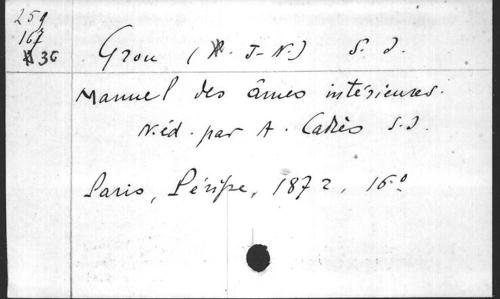 259
167
36
Grou (J-N.) S. J.
Manuel des âmes intérieures.
N. éd. par A. Cadrès S.J.
Paris, Périsse, 1872, 16º